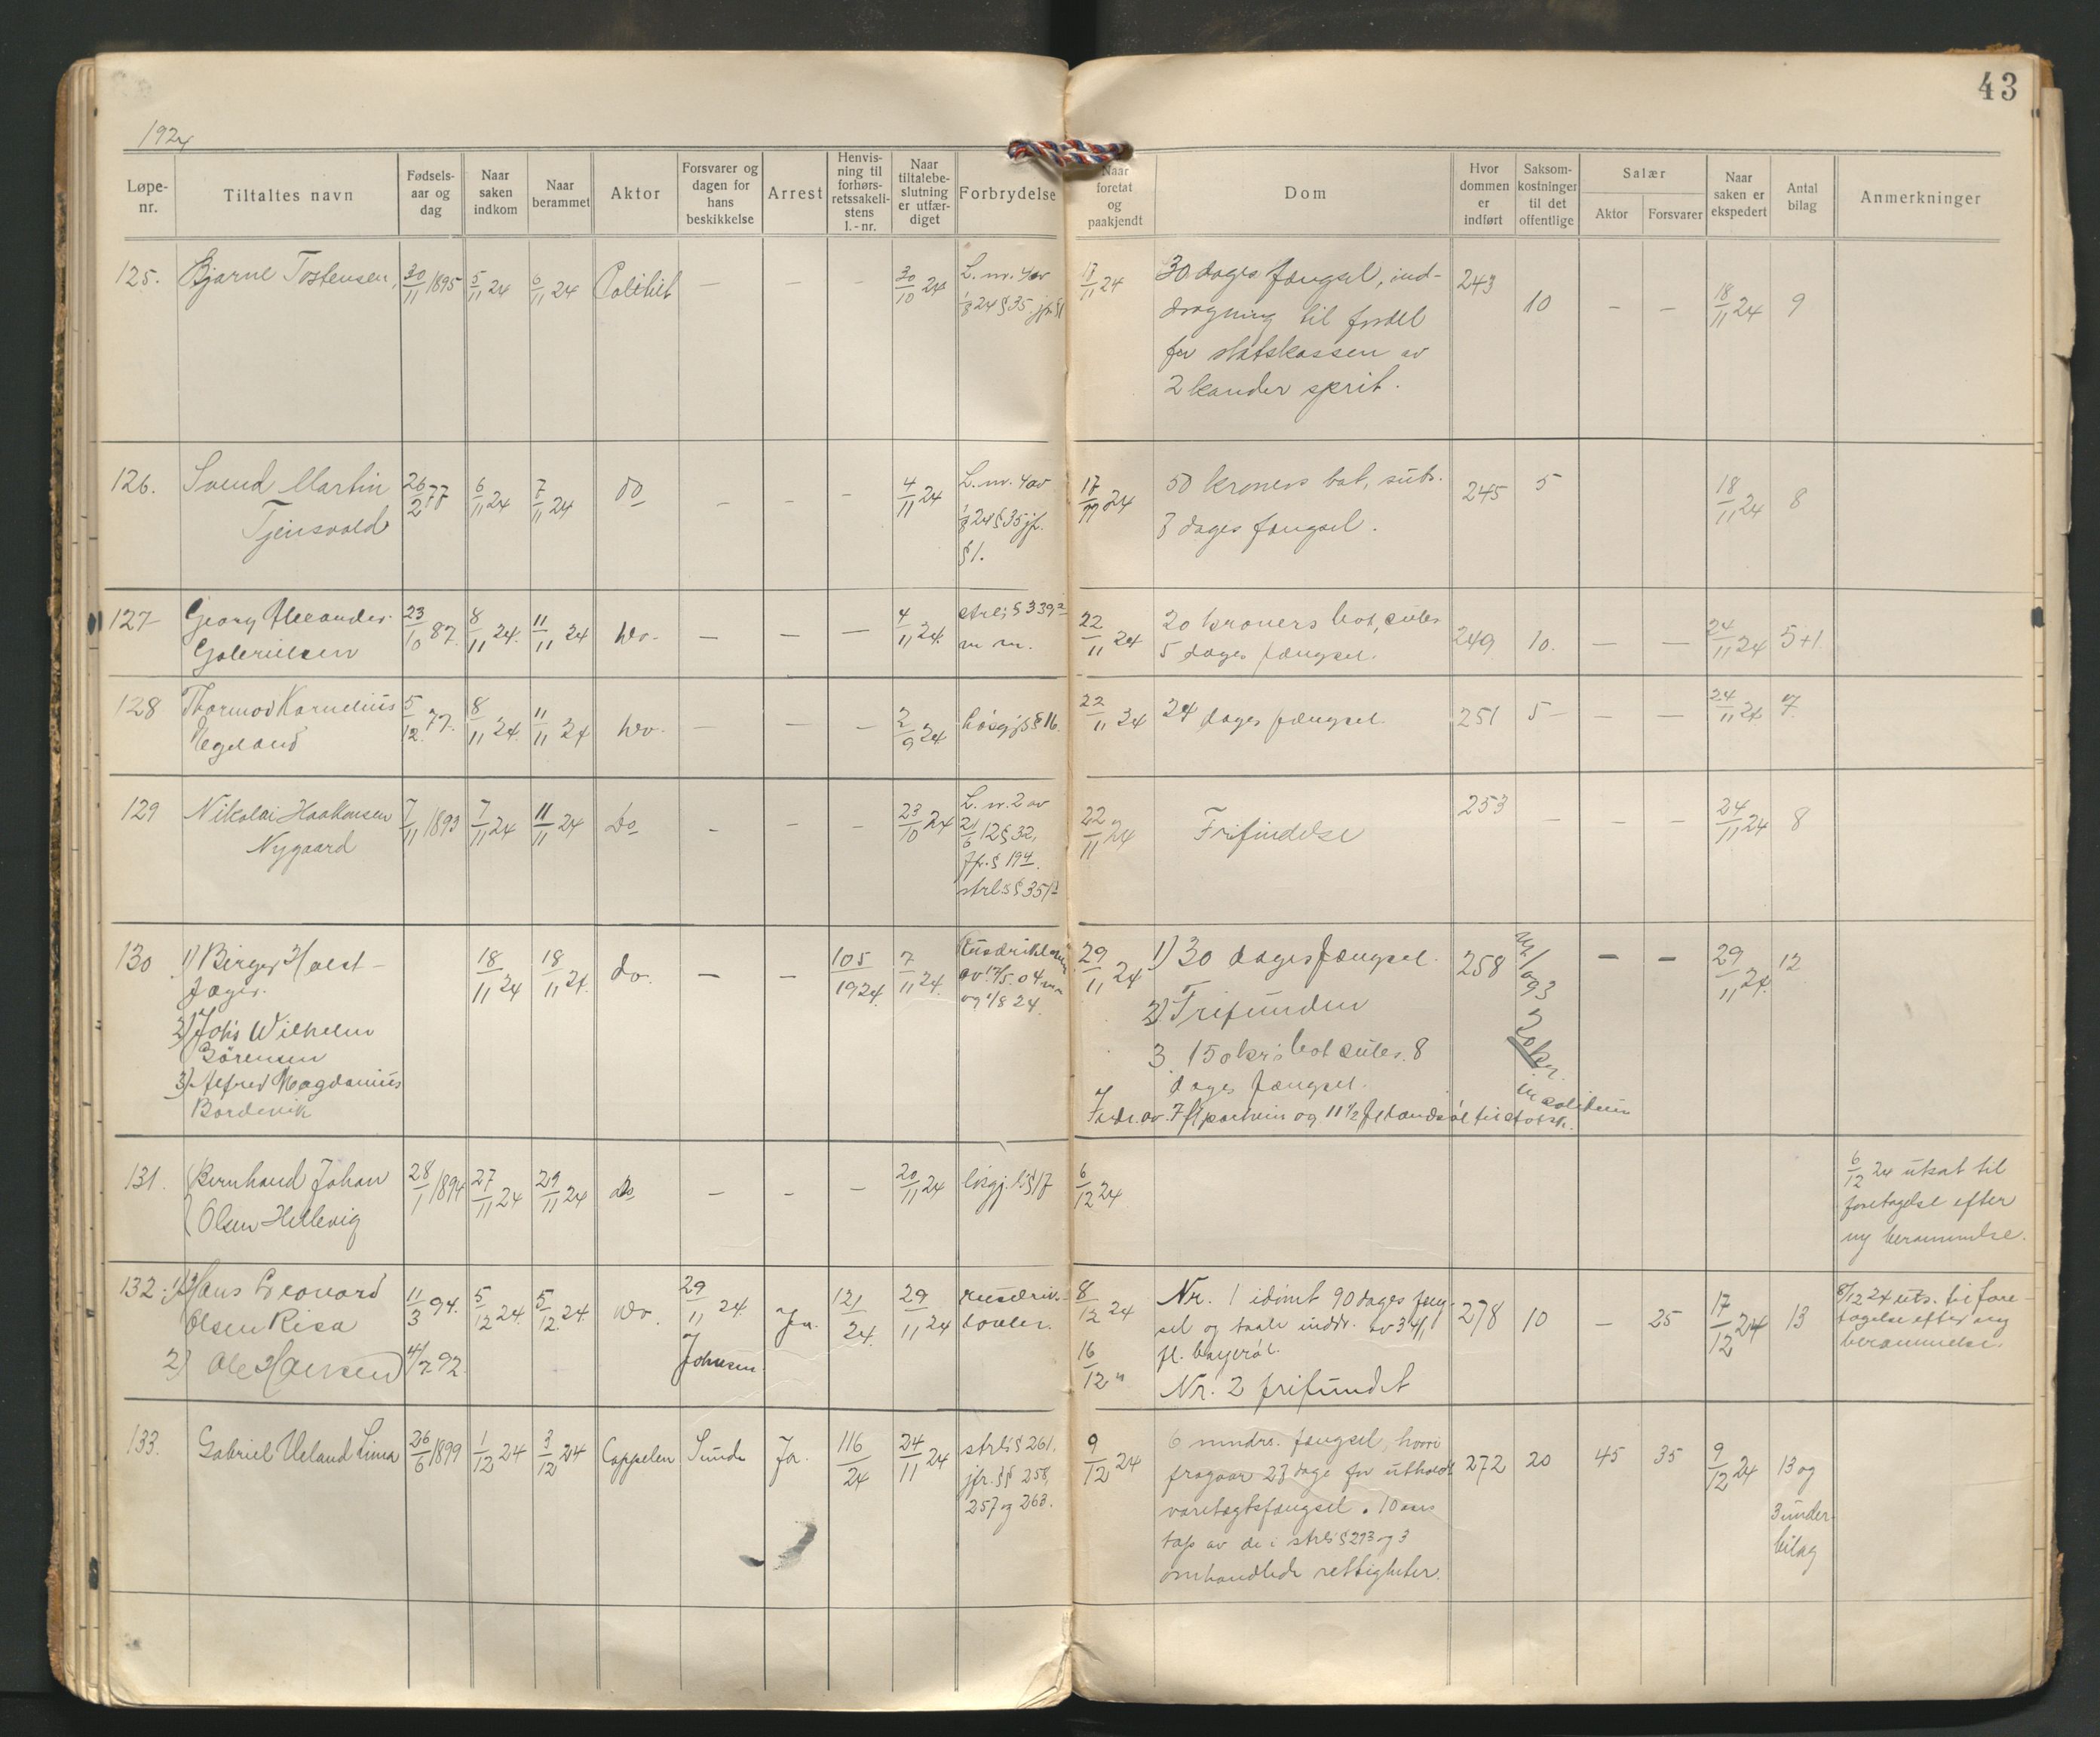 43
1924
Løpe-nr. Tiltaltes navn Fødsels-aar og dag Naar saken indkom Naar berammet Aktor Forsvarer og dagen for hans beskikkelse Arrest Henvis-ning til forhørs-retssakeli-stens l.-nr. Naar tiltalebe-slutning er utfær-diget Forbrydelse Naar foretat og paakjendt Dom Hvor dommen er indført Saksom-kostninger til det offentlige Salær Aktor Forsvarer Naar saken er ekspedert Antal bilag Anmerkninger
125. Bjarne Tostensen, 30/11 1895 5/11 24 6/11 24 Politiet — — — 30/10 24 L. nr. 4 av 17/11 24 30 dages fængsel, ind- 243 10 — — 18/11 24 9
1/8 24 § 35. jfr. § 1 dragning til fordel
for statskassen av
2 kander sprit.
126. Svend Martin 26/2 77 6/11 24 7/11 24 do — — — 4/11 24 L. nr. 4 av 17/11 24 50 kroners bot, subs. 245 5 18/11 24 8
Tjensvold 1/8 24 § 35 jfr. 8 dages fængsel.
§ 1.
127 Georg Alexander 23/10 87. 8/11 24. 11/11 24 do. — — — 4/11 24. strls § 339,2 22/11 24 20 kroners bot, subs 249 10. — — 24/11 24 5+1
Gabrielsen m m. 5 dages fængsel.
128 Thormod Kornelius 5/12. 77. 8/11 24. 11/11 24 do. — — — 2/9 24 løsgjs § 16. 22/11 24 24 dages fængsel 251 5 — — — 24/11 24 7.
Egeland
129 Nikolai Haakonsen 7/11 1893 7/11 24 11/11 24 Do — — — 23/10 24 L. nr. 2 av 22/11 24 Frifindelse 253 — — — 24/11 24 8
Nygaard 21/6 12 § 32,
jfr. § 19
strls § 351
130 1) Birger Holst- 18/11 24 18/11 24. do. — — 105/1924. 7/11 24. 29/11 24 1) 30 dages fængsel. 258 — — 29/11 24. 12
Jæger. av 17/5. 04
2) Johs Wilhelm og 1/8 24. 2) Frifunden
Sörensen 3. 150 kr's bot subs. 8 20 kr.
3) Alfred Magdanius dages fængsel. in solidum
Bordevik Inddr. av 7 fl portvin og 11 1/2 fl landsøl til statsk.
131. Bernhard Johan 28/1 1894 27/11 24 29/11 24 do — — — 20/11 24 løsgj. l. § 17 6/12 24 6/12 24 utsat til
Olsen Hellevig foretagelse efter
ny berammelse.
132. 1) Hans Leonard 11/3 94. 5/12 24. 5/12 24. do. 29/11 24 Ja. 121/24. 29/11 24 rusdriks- 8/12 24 Nr. 1 idømt 90 dages fæng- 278 10 — 25 17/12 24 13 8/12 24 uts. til fore-
Olsen Risa Johnsen. loven. sel og taale inddr. av 34 1/1 tagelse efter ny
2) Ole Hansen 4/7. 92. 16/12 " fl. bayerøl. berammelse.
Nr. 2 frifundet
133. Gabriel Ueland Lima 26/6 1899 1/12 24 3/12 24 Cappelen Sunde Ja. 116/24 24/11 24 strls § 261, 9/12 24 6 mndrs. fængsel, hvori 272 20 45 35 9/12 24 13 og
jfr. §§ 258, fragaar 23 dage for utholdt 3 under-
257 og 263. varetægtsfængsel. 10 aars bilag
tap av de i strls § 29 3 og 3
omhandlede rettigheter.